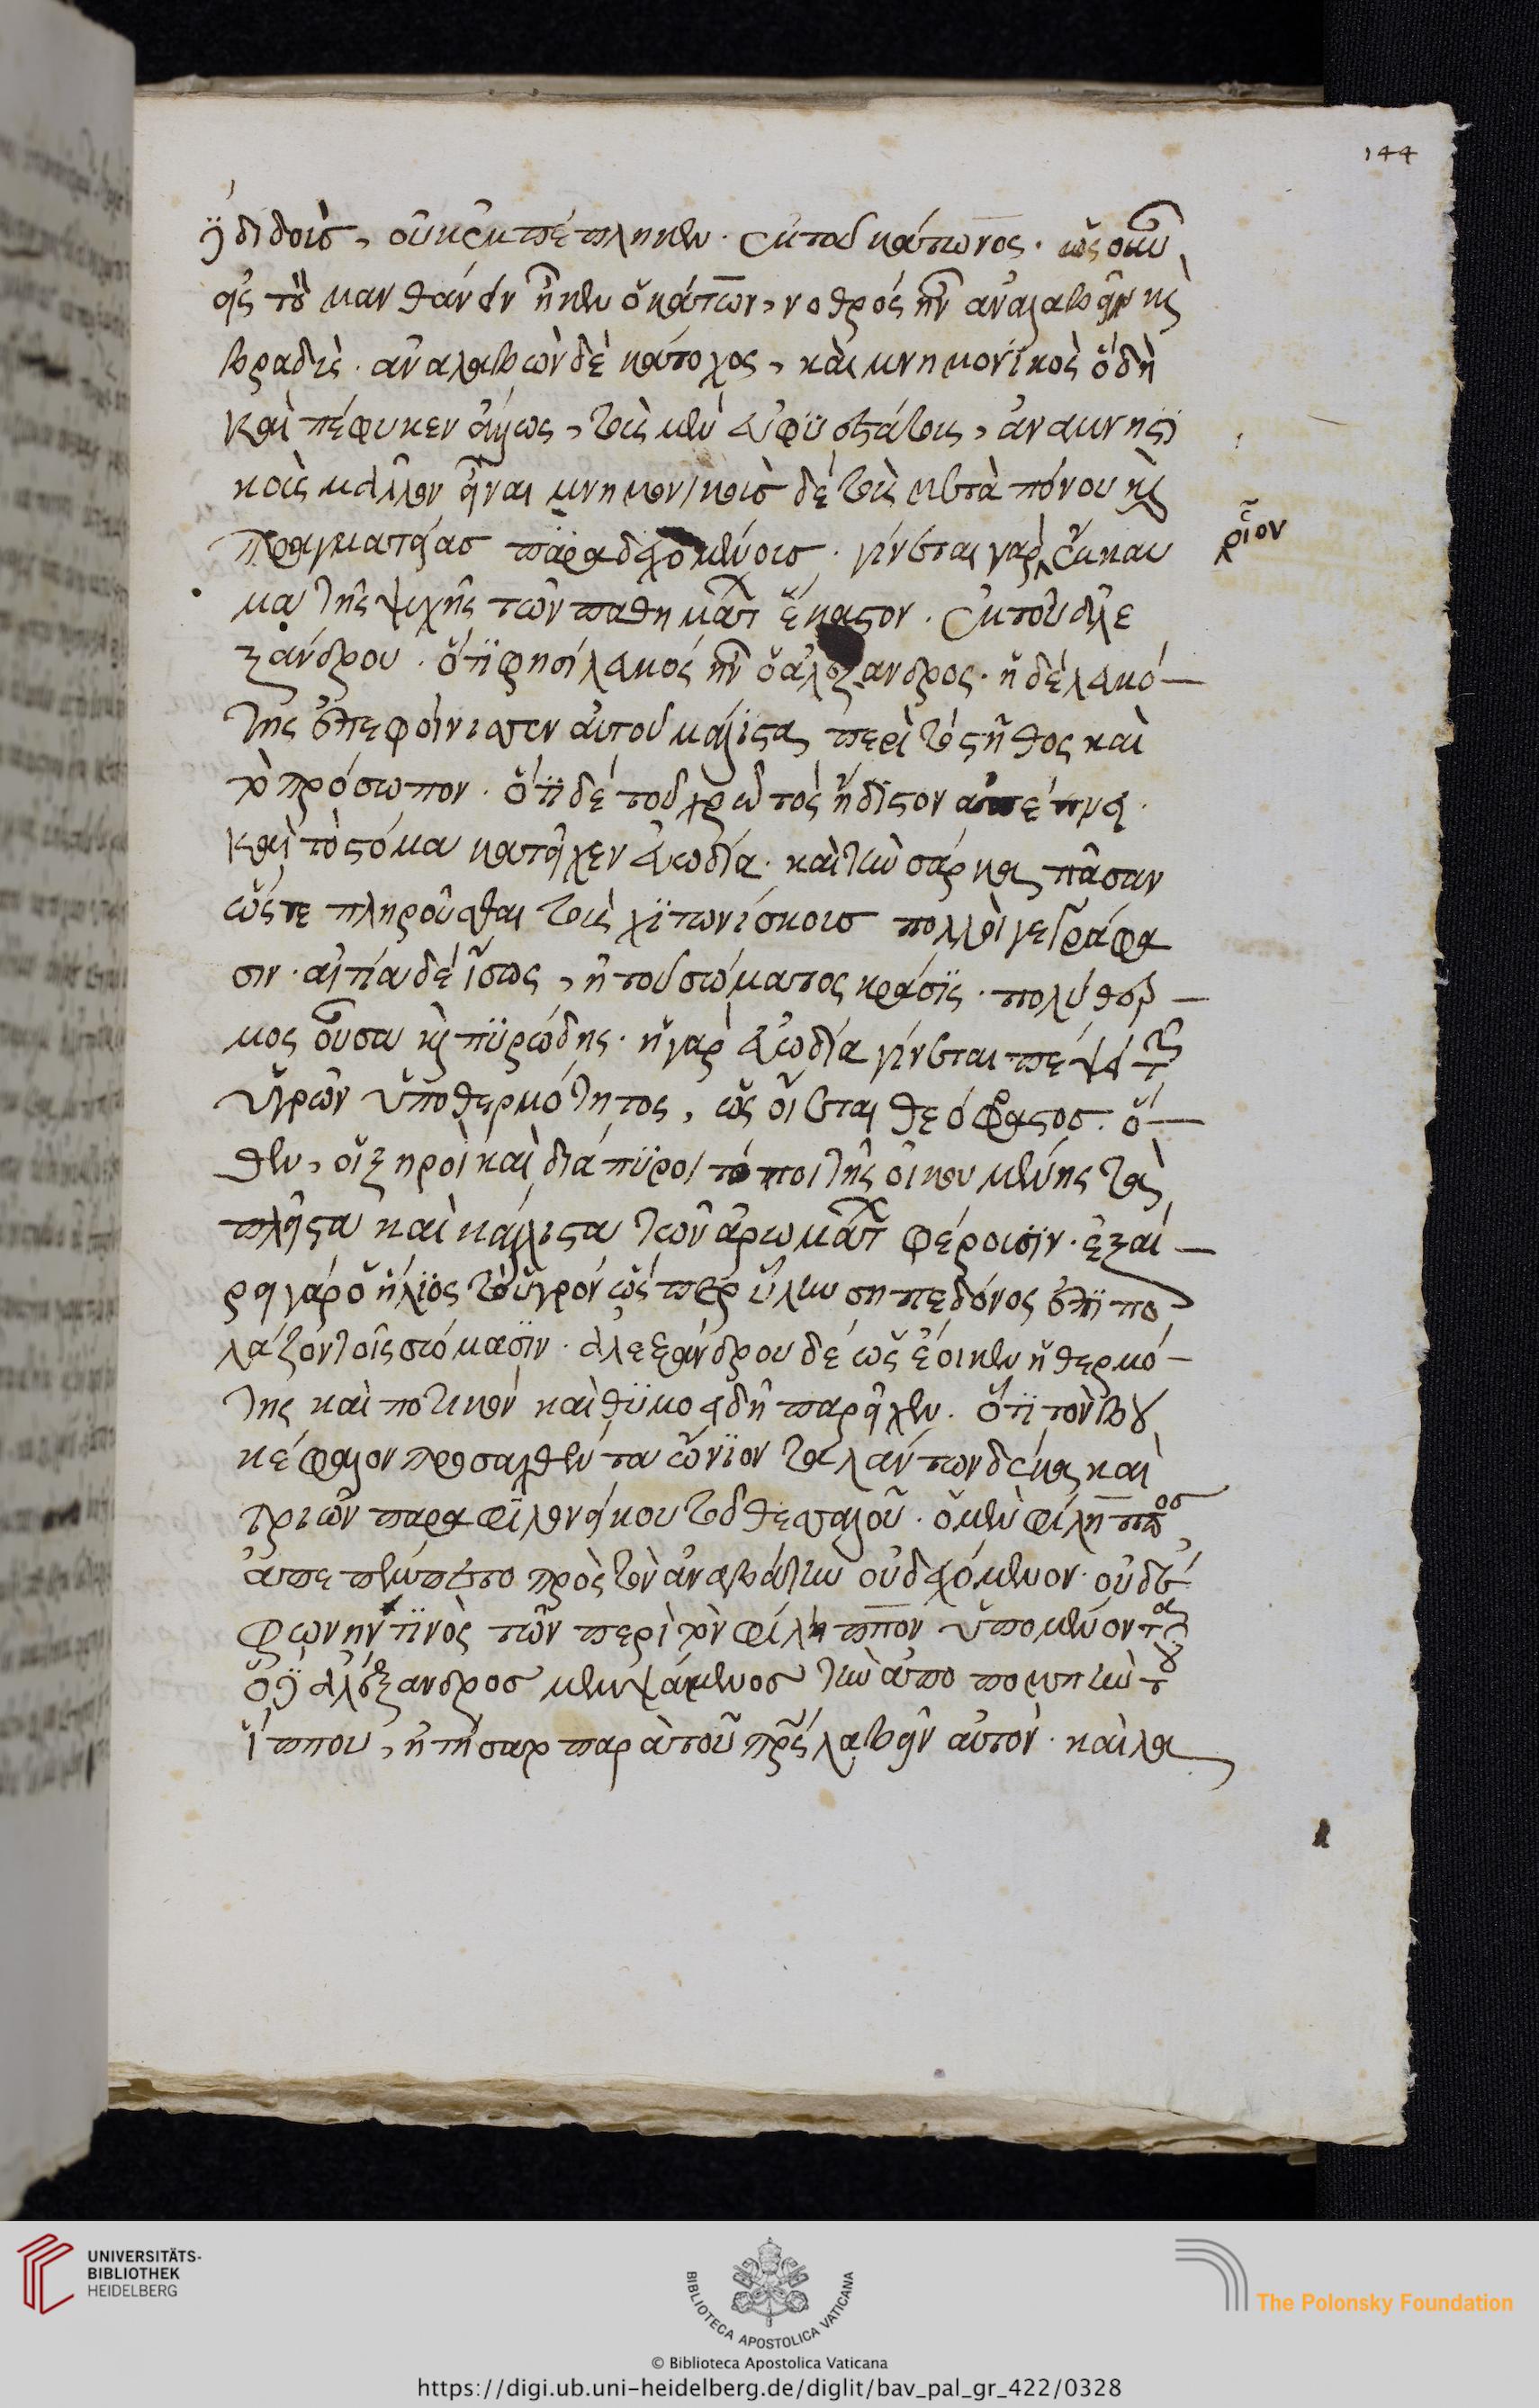 144
διδοὺς, οὐκ ἐκπέπληκεν. ἐκ τοῦ κάτωνος. ὡς οὖν
εἰς τὸ μανθάνειν ἧκεν ὁ κάτων, νοθρὸς ἦν ἀναλαβεῖν κ(αὶ)
βραδὺς. ἀναλαβὼν δὲ κάτοχος, καὶ μνημονϊκὸς ὃ δὴ
καὶ πέφυκεν ἄλλως, τοὺς μὲν εὐφϋεῖς
κοὺς μᾶλλον εἶναι μνημονικοὺς δὲ τοὺς μετὰ πόνου κ(αὶ)
πραγματείας παραδεχομένους. γίνεται γὰρ ἔγκαυ
ριον
μα τῆς ψυχῆς τῶν παθημάτ(ων) ἕκαστον. ἐκ τοῦ ἀλε
ξάνδρου. ὅτϊ φησὶ λευκὸς ἦν ὁ ἀλέξανδρος. ἡ δὲ λευκό
της ἐπεφοίνισσεν αὐτοῦ μάλιστα περὶ τὸ στῆθος καὶ
τὸ πρόσωπον. ὅτϊ δὲ τοῦ χρωτὸς ἥδιστον ἀπέπνει.
καὶ τὸ στόμα κατεῖχεν εὐωδία. καὶ τὴν σάρκα πᾶσαν
ὥστε πληροῦσθαι τοὺς χϊτωνίσκους πολλοὶ γεγράφα
σιν. αἰτία δὲ ἴσως, ἡ τοῦ σώματος κρᾶσϊς. πολύθερ
μος οὖσα κ(αὶ) πϋρώδης. ἡ γὰρ εὐωδία γίνεται πέψει τῶν
ὑγρῶν ὑπὸ θερμότητος, ὡς οἴεται θεόφραστος. ὅ
θεν, οἱ ξηροὶ καὶ διάπϋροι τόποι τῆς οἰκουμένης τὰ
πλεῖστα καὶ κάλλιστα τῶν ἀρωμάτ(ων) φέρουσϊν. ἐξαί
ρει γὰρ ὁ ἥλϊος τὸ ὑγρὸν ὥσπερ ὕλην σηπεδόνος ἐπϊπο
λάζον τοῖς σώμασϊν. ἀλεξάνδρου δὲ ὡς ἔοικεν ἡ θερμό
της καὶ ποτικὸν καὶ θϋμοειδῆ παρεῖχεν. ὅτϊ τὸν βου
κέφαλον προσαχθέντα ὤνϊον ταλάντων δέκα καὶ
τριῶν παρὰ φϊλονείκου τοῦ θεσσαλοῦ. ὁ μὲν φίλιππος
ἀπεπέμπετο πρὸς τὸν ἀναβάτην οὐ δεχόμενον. οὐδὲ
φωνήν τϊνὸς τῶν περὶ τὸν φίλιππον ὑπομένοντα
ὃν ἀλέξανδρος μεμψάμενος τὴν ἀποπομπὴν τοῦ
ἵππου, ᾐτήσατο παρὰ τοῦ π(ατ)ρ(ὸ)ς λαβεῖν αὐτόν. καὶ λα
UNIVERSITÄTS-
BIBLIOTHEK
HEIDELBERG
BIBLIOTECA APOSTOLICA VATICANA
The Polonsky Foundation
© Biblioteca Apostolica Vaticana
https://digi.ub.uni-heidelberg.de/diglit/bav_pal_gr_422/0328